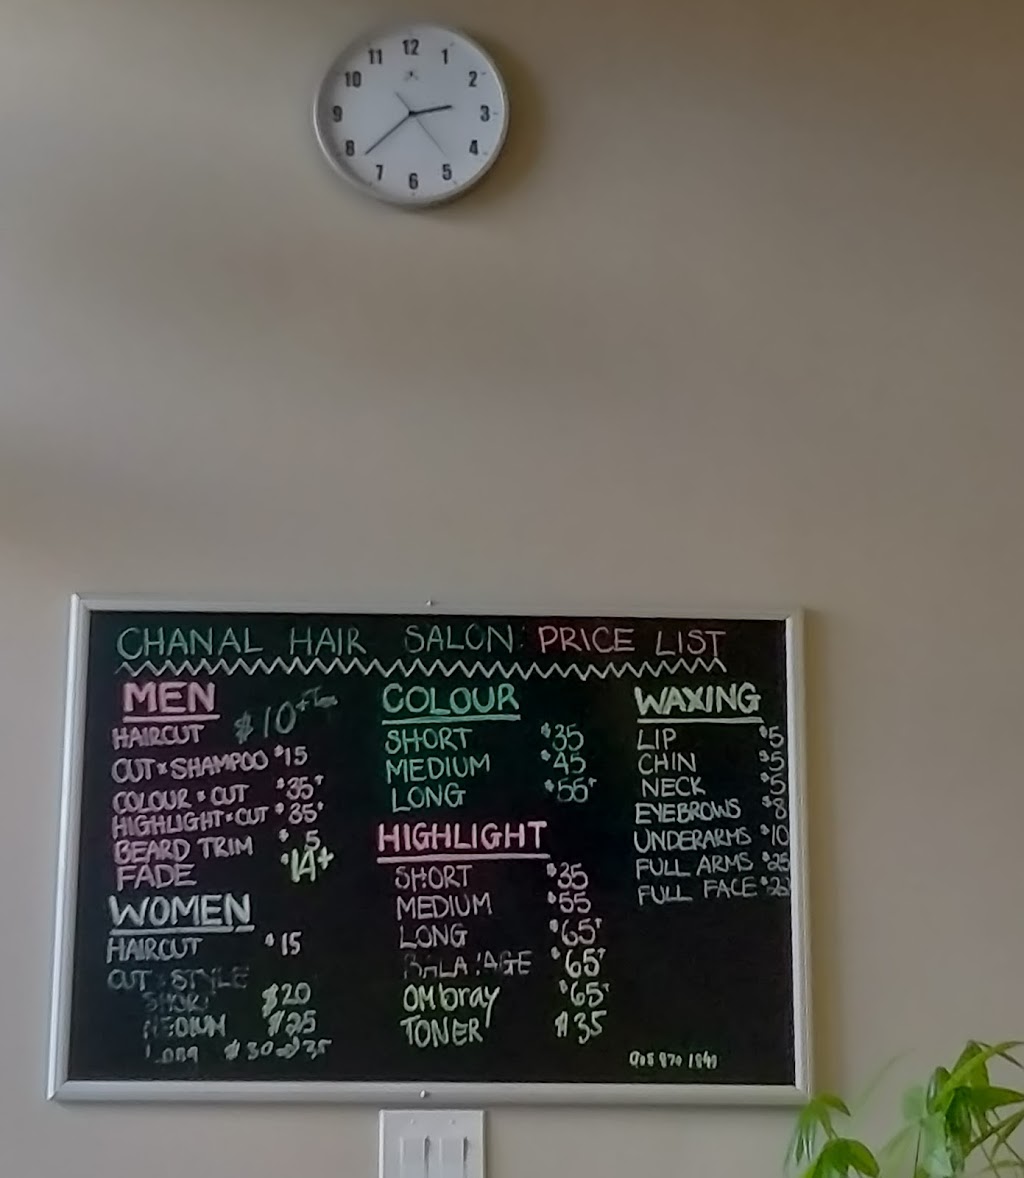 12
11 1
10 2
9 3
8 4
7 5
6
CHANAL HAIR SALON: PRICE LIST
MEN
HAIRCUT $10
CUT & SHAMPOO $15
COLOUR & CUT $35+
HIGHLIGHT & CUT $35+
BEARD TRIM $5
FADE $14+
WOMEN
HAIRCUT $15
CUT & STYLE
SHORT $20
MEDIUM $25
Long $30
COLOUR
SHORT $35
MEDIUM $45
LONG $55+
HIGHLIGHT
SHORT $35
MEDIUM $55
LONG $65+
$65+
OMbray $65+
TONER $35
WAXING
LIP $5
CHIN $5
NECK $5
EYEBROWS $8
UNDERARMS $10
FULL ARMS $25
FULL FACE
905 870 1840